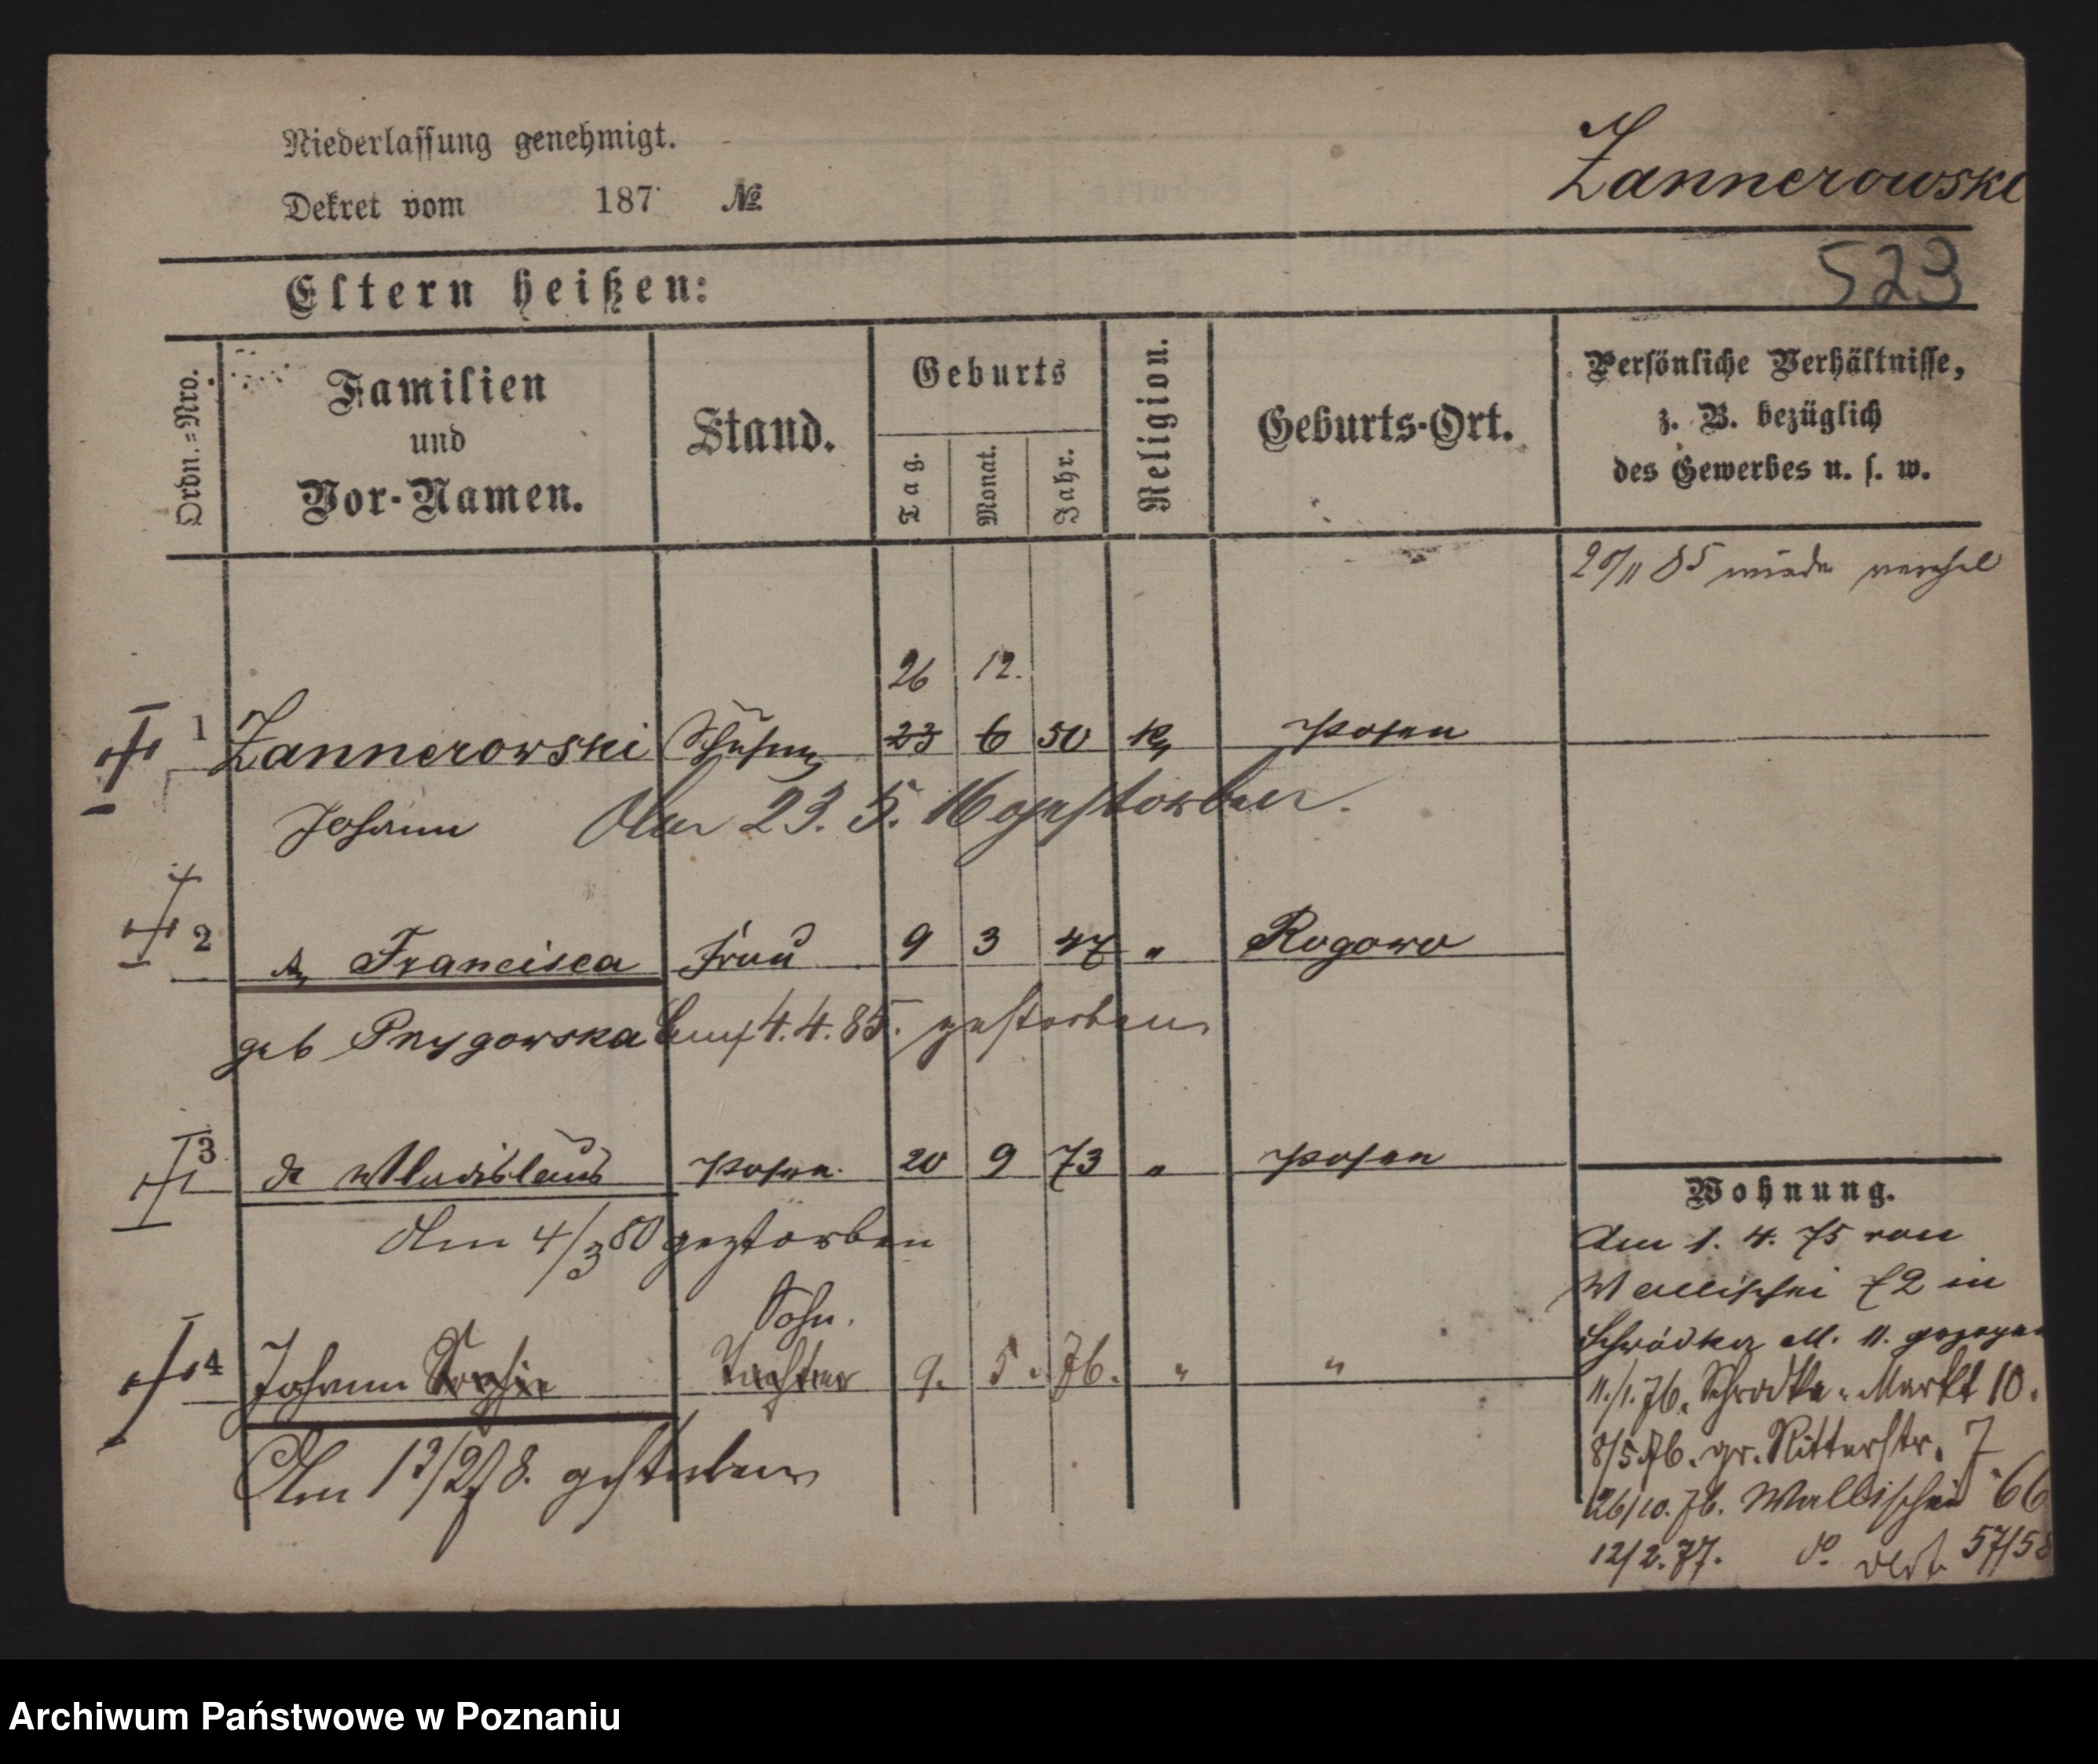 Niederlassung genehmigt.
Dekret vom 187 №
Zannerowski
523
Eltern heißen:
Ordn.=Nro.
Familien
und
Vor-Namen.
Stand.
Geburts
Tag.
Monat.
Jahr.
Religion.
Geburts-Ort.
Persönliche Verhältnisse,
z. B. bezüglich
des Gewerbes u. s. w.
85
26 12.
1 Zannerowski 23 6 50 Posen
Johann Am 23. 5. 16 gestorben.
2 Francisca Frau 9 3 47 " Rogowo
geb 4.4.85. gestorben
3 Wladislaus Posen. 20 9 73 " Posen
Am 4/3 80 gestorben
Sohn.
4 Johann Tochter 9. 5. 76. " "
Am 13/2 78. gestorben
Wohnung.
Am 1. 4. 75 von
Wallischei 72 in
Schrodka M. 11. gezogen
11./1. 76. Schrodka-Markt 10.
8/5 76. gr. Ritterstr. 7
26/10. 76. Wallischei 66
12/2. 77. do 57/58
Archiwum Państwowe w Poznaniu